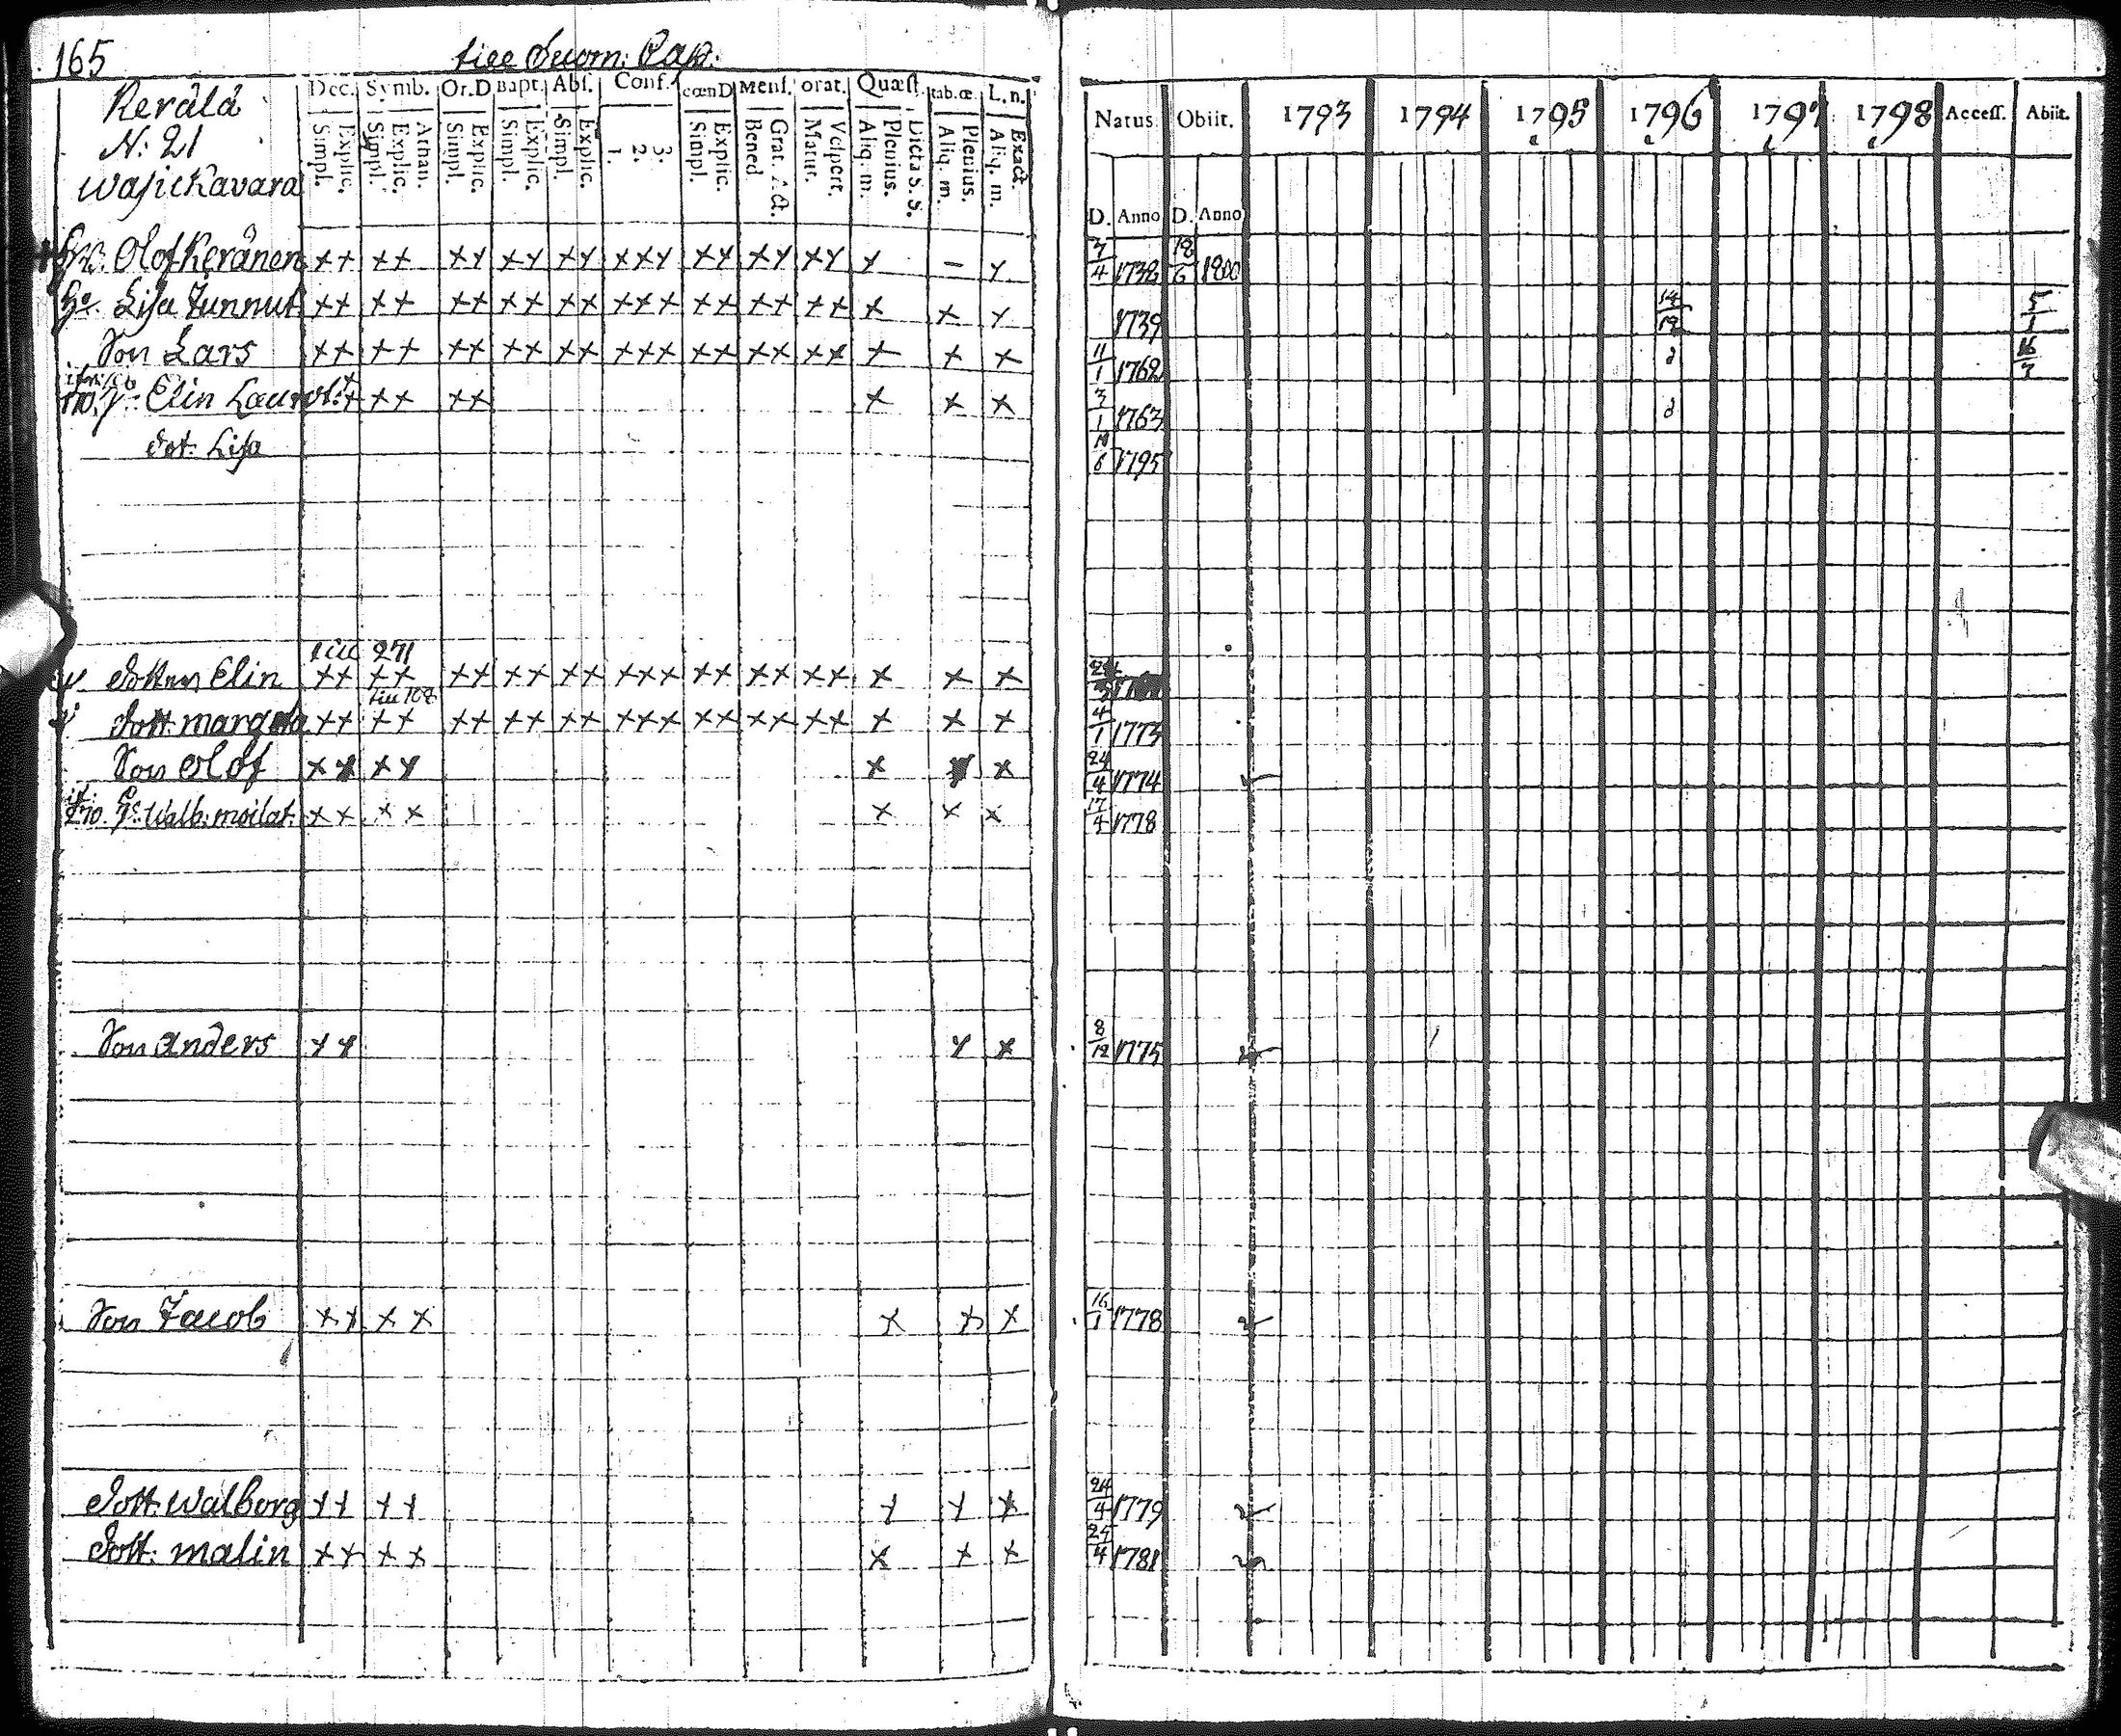 165
till Suom: Cap:
Dec. Symb. Or.D Bapt. Abs. Conf. cœnD Mens. orat. Quæst. tab.œ. L.n.
Natus. Obiit. 1793 1794 1795 1796 1797 1798 Access. Abiit.
Kerälä
N: 21
Wasickavara
Simpl. Explic. Simpl. Explic. Athan. Simpl. Explic. Simpl. Explic. Simpl. Explic. 1. 2. 3. Simpl. Explic. Bened. Grat. A ct. Matut. Vespert. Aliq. m. Plenius. Dicta S. S. Aliq. m. Plenius. Aliq. m. Exact.
D. Anno D. Anno
Olof Keränen ++ ++ ++ ++ ++ +++ ++ ++ ++ + – + 7/4 1738 18/6 1800
Lisa Tunnut ++ ++ ++ ++ ++ +++ ++ ++ ++ + + + 1739 5/1
Son Lars ++ ++ ++ ++ ++ +++ ++ ++ ++ + + + 11/1 1762 16/7
Elin ++ ++ + + + 3/1 1763
dot. Lisa 1795
till 271
Dottren Elin ++ ++ ++ ++ ++ +++ ++ ++ ++ + + +
till 108
Dott. margeta ++ ++ ++ ++ ++ +++ ++ ++ ++ + + + 4/1 1773
Son Olof ++ ++ + + 24/4 1774
Walb: moilat. ++ ++ + + + 17/4 1778
Son Anders ++ + + 8/12 1775
Son Jacob ++ ++ + + + 16/1 1778
Dott. Walborg ++ ++ + + + 24/4 1779
Dott: malin ++ ++ + + + 24/4 1781